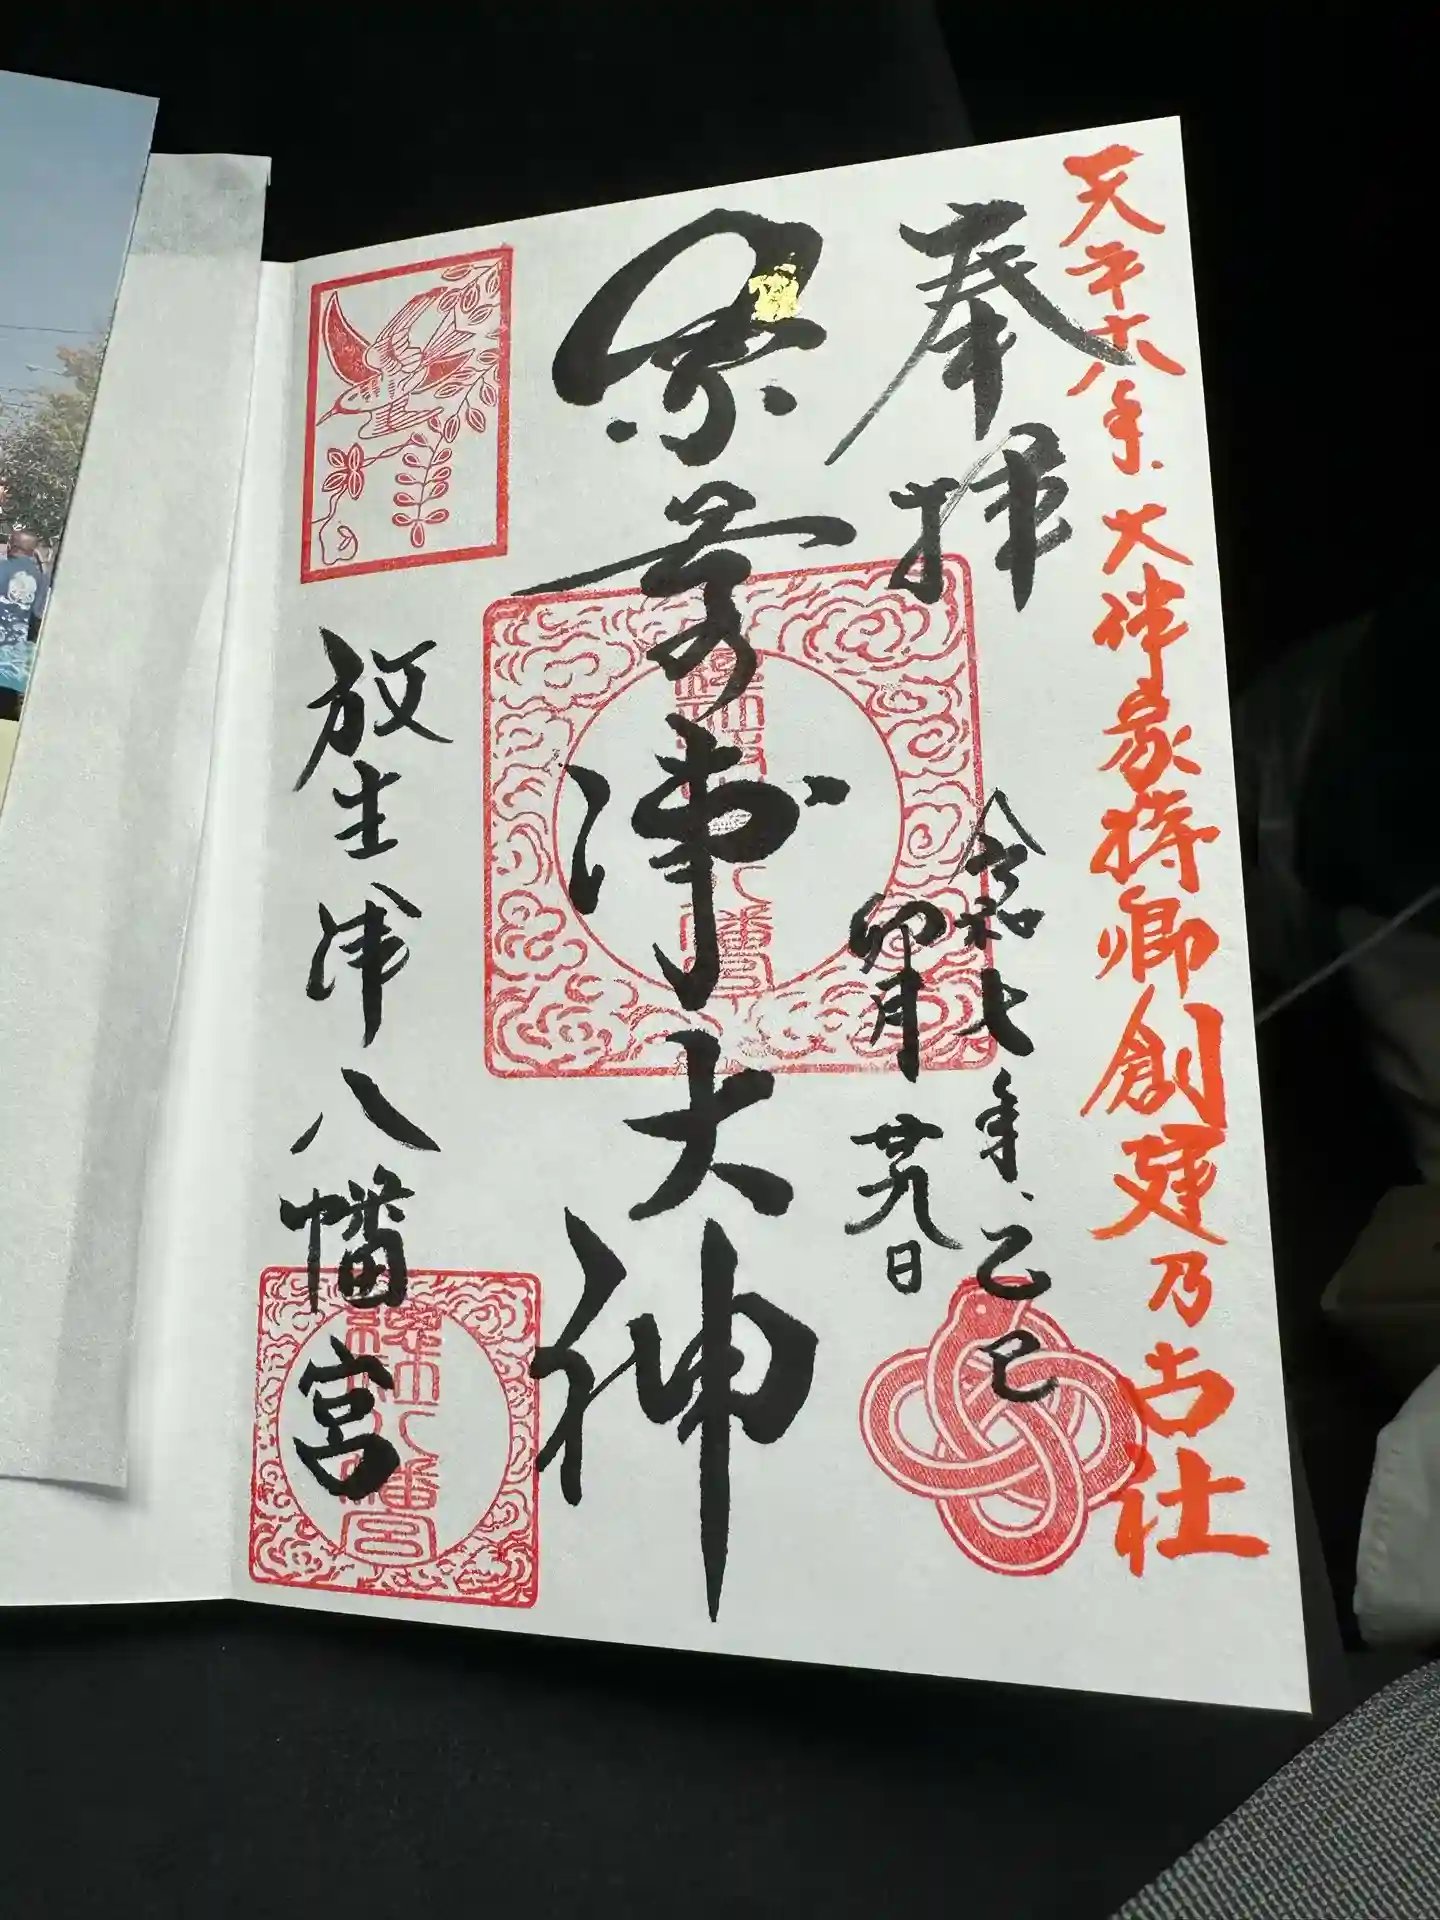 天平十八年、大伴家持卿創建乃古社
奉拝
令和七年、乙巳
卯月廿九日
奈呉浦大神
放生津八幡宮